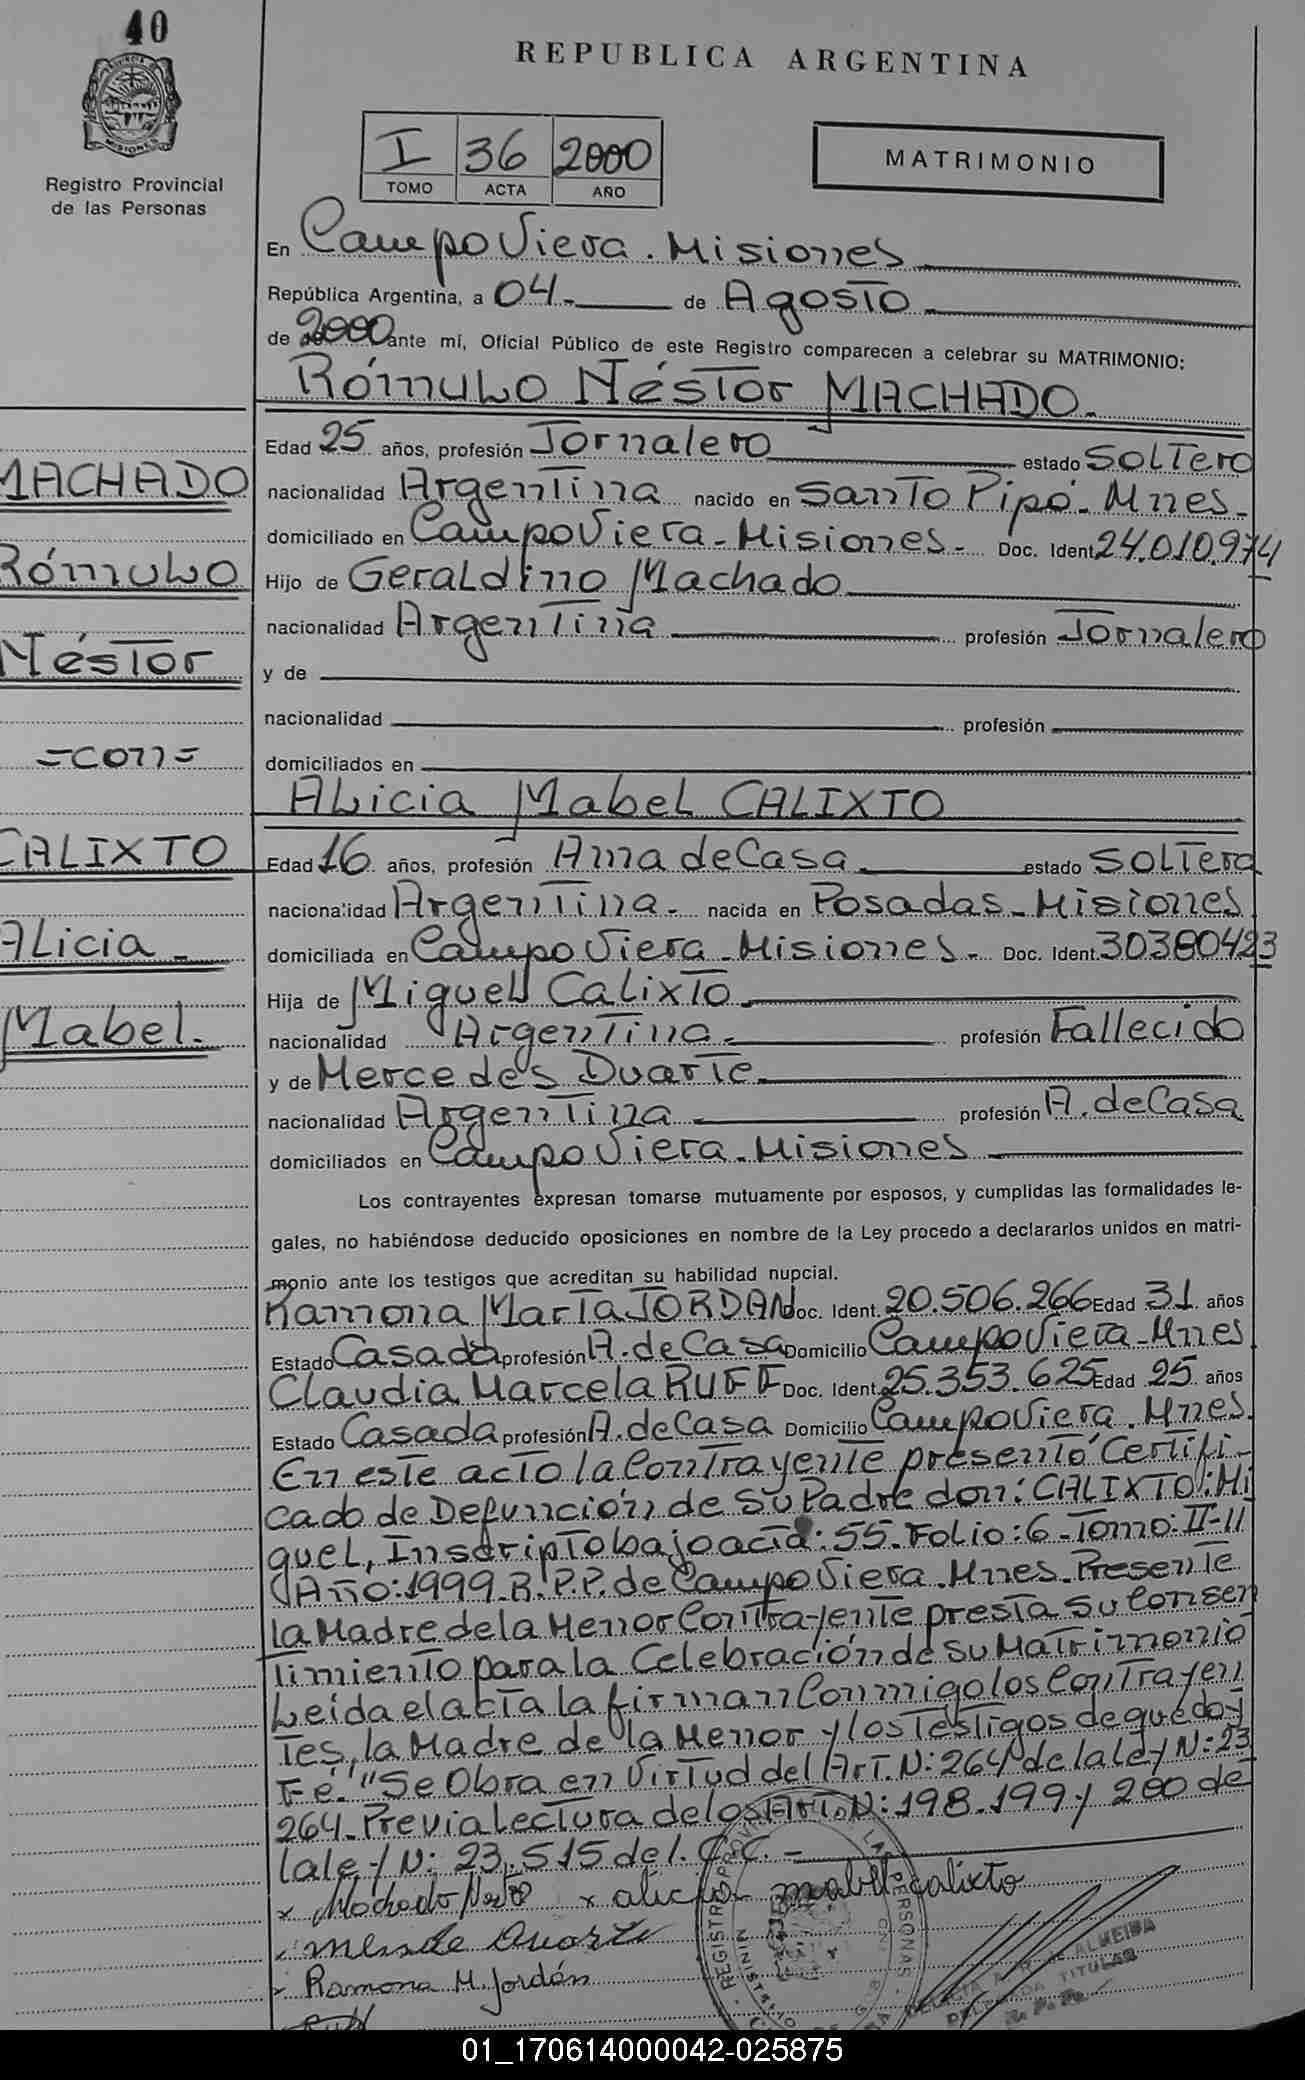 40
REPUBLICA ARGENTINA
MISIONES
Registro Provincial
de las Personas
I 36 2000
TOMO ACTA AÑO
MATRIMONIO
En Campo Viera. Misiones
República Argentina, a 04 de Agosto
de 2000 ante mí, Oficial Público de este Registro comparecen a celebrar su MATRIMONIO:
Rómulo Néstor MACHADO.
Edad 25 años, profesión Jornalero estado Soltero
nacionalidad Argentina nacido en Santo Pipó. Mnes.
domiciliado en Campo Viera-Misiones. Doc. Ident. 24.010.974
Hijo de Geraldino Machado
nacionalidad Argentina profesión Jornalero
y de
nacionalidad profesión
domiciliados en
Alicia Mabel CALIXTO
Edad 16 años, profesión Ama de Casa estado Soltera
nacionalidad Argentina. nacida en Posadas-Misiones
domiciliada en Campo Viera-Misiones. Doc. Ident. 30380423
Hija de Miguel Calixto
nacionalidad Argentina. profesión Fallecido
y de Mercedes Duarte
nacionalidad Argentina profesión A. de Casa
domiciliados en Campo Viera-Misiones
MACHADO
Rómulo
Néstor
=con=
CALIXTO
Alicia
Mabel.
Los contrayentes expresan tomarse mutuamente por esposos, y cumplidas las formalidades le-
gales, no habiéndose deducido oposiciones en nombre de la Ley procedo a declararlos unidos en matri-
monio ante los testigos que acreditan su habilidad nupcial.
Ramona Marta JORDAN Doc. Ident. 20.506.266 Edad 31 años
Estado Casada profesión A. de Casa Domicilio Campo Viera-Mnes
Claudia Marcela RUFF Doc. Ident. 25.353.625 Edad 25 años
Estado Casada profesión A. de Casa Domicilio Campo Viera. Mnes.
En este acto la Contrayente presentó Certifi-
cado de Defunción de su Padre don: CALIXTO: Mi
guel, Inscripto bajo acta: 55. Folio: 6-Tomo: II-11
Año: 1999. R.P.P. de Campo Viera. Mnes. Presente
la Madre de la Menor Contrayente presta su Consen
timiento para la Celebración de su Matrimonio
Leída el acta la firman Conmigo los Contrayen
tes, la Madre de la Menor y los Testigos de que doy
Fé. "Se Obra en Virtud del Art. N: 264 de la ley N: 23
264. Previa Lectura de los Art. N: 198. 199 y 200 de
la ley N: 23.515 del. C.C. -
x Machado x alicia mabel calixto
Ramona M. Jordán
REGISTRO PROVINCIAL LAS PERSONAS
ALMEIDA
DELEGADA TITULAR
R. P. P.
01_170614000042-025875